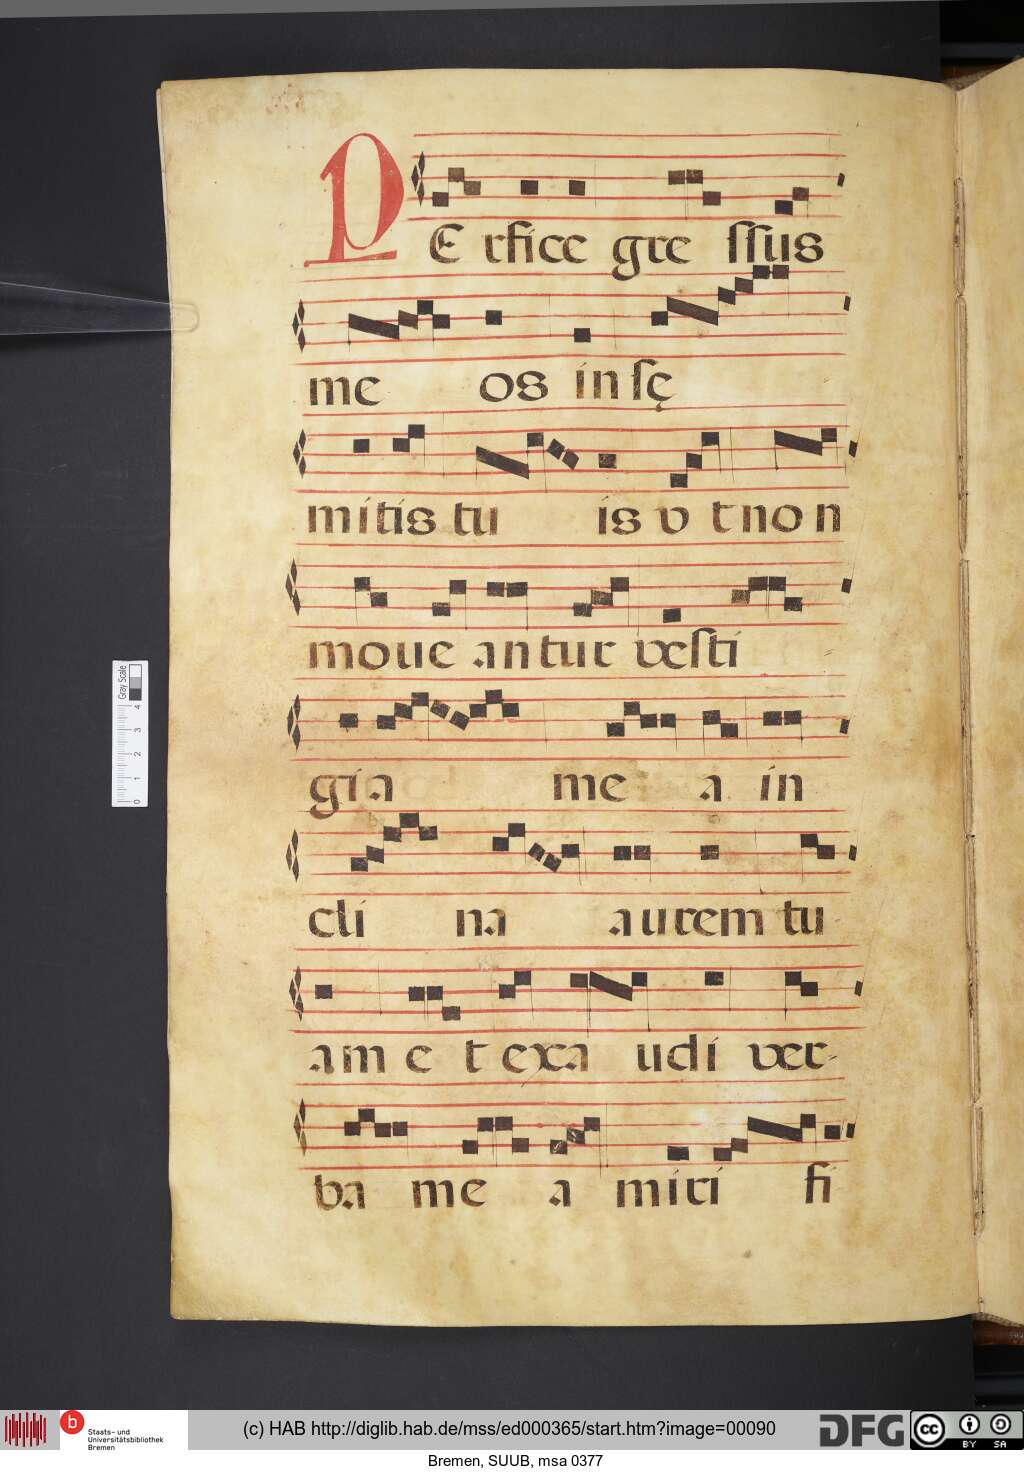 PE rfice gre ssus
me os in sę
mitis tu is v t non
moue antur vesti
gia me a in
cli na aurem tu
am e t exa udi ver-
ba me a miri fi
Gray Scale
0 1 2 3 4
b Staats- und
Universitätsbibliothek
Bremen
(c) HAB http://diglib.hab.de/mss/ed000365/start.htm?image=00090
DFG
cc BY SA
Bremen, SUUB, msa 0377